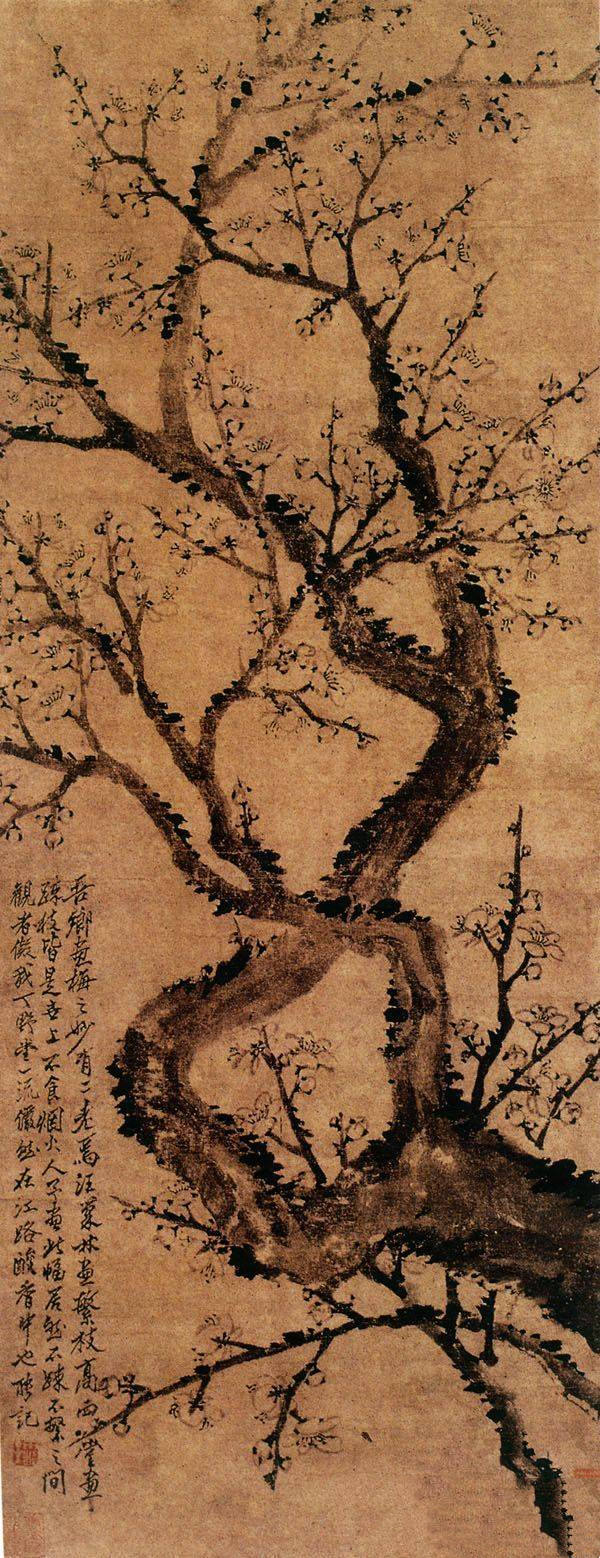 吾鄉畫梅之妙有二老焉汪巢林畫繁枝高西唐畫
疎枝皆是世上不食烟火人予畫此幅居然不疎不繁之間
觀者儗我丁野堂一流儼然在江路酸香中也